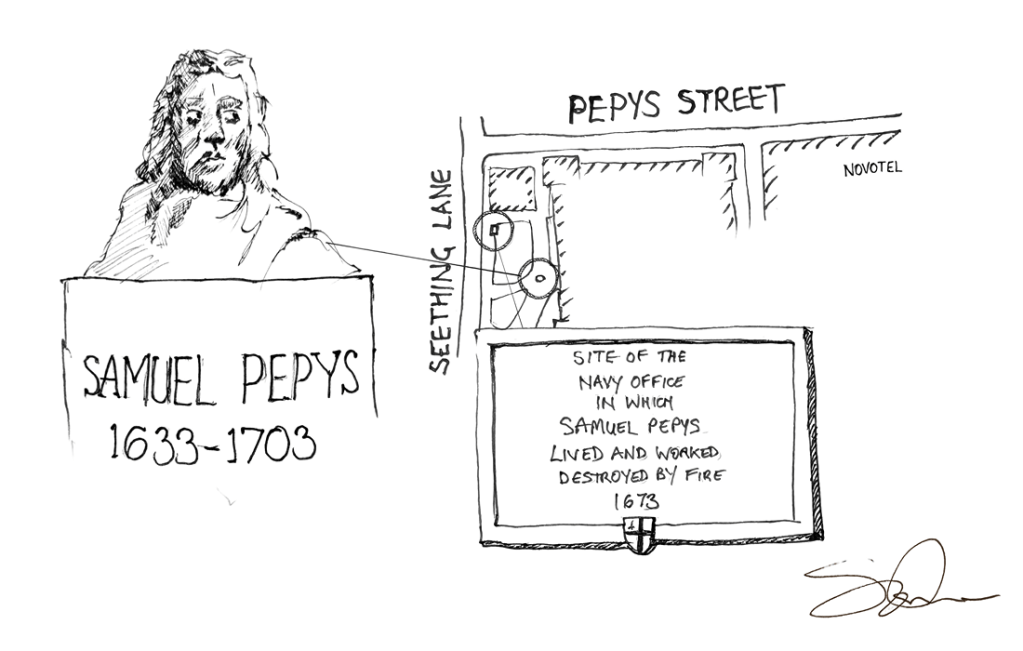 PEPYS STREET
NOVOTEL
SEETHING LANE
SAMUEL PEPYS
1633-1703
SITE OF THE
NAVY OFFICE
IN WHICH
SAMUEL PEPYS
LIVED AND WORKED
DESTROYED BY FIRE
1673